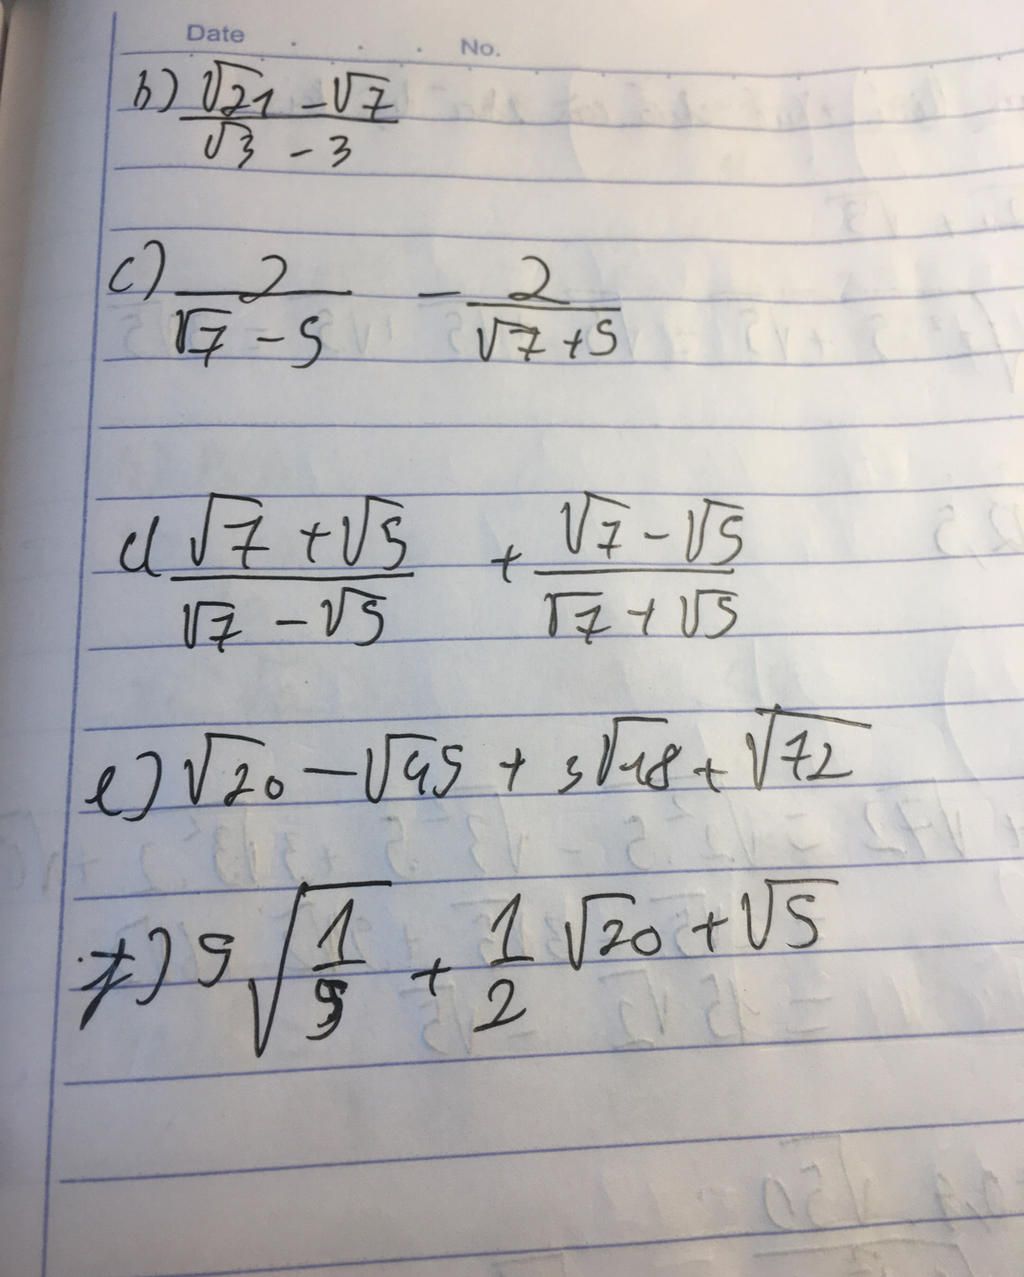 Date . . . No.
b) (√21 - √7)/(√3 - 3)
c) 2/(√7 - 5) - 2/(√7 + 5)
d (√7 + √5)/(√7 - √5) + (√7 - √5)/(√7 + √5)
e) √20 - √45 + 3√18 + √72
f) 5√(1/5) + 1/2 √20 + √5